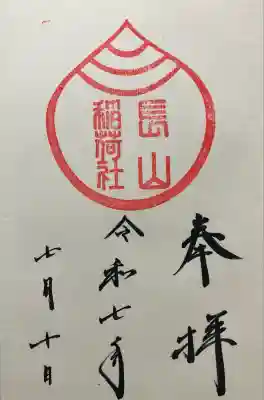 奉拝
長山
稲荷社
令和七年
七月十日